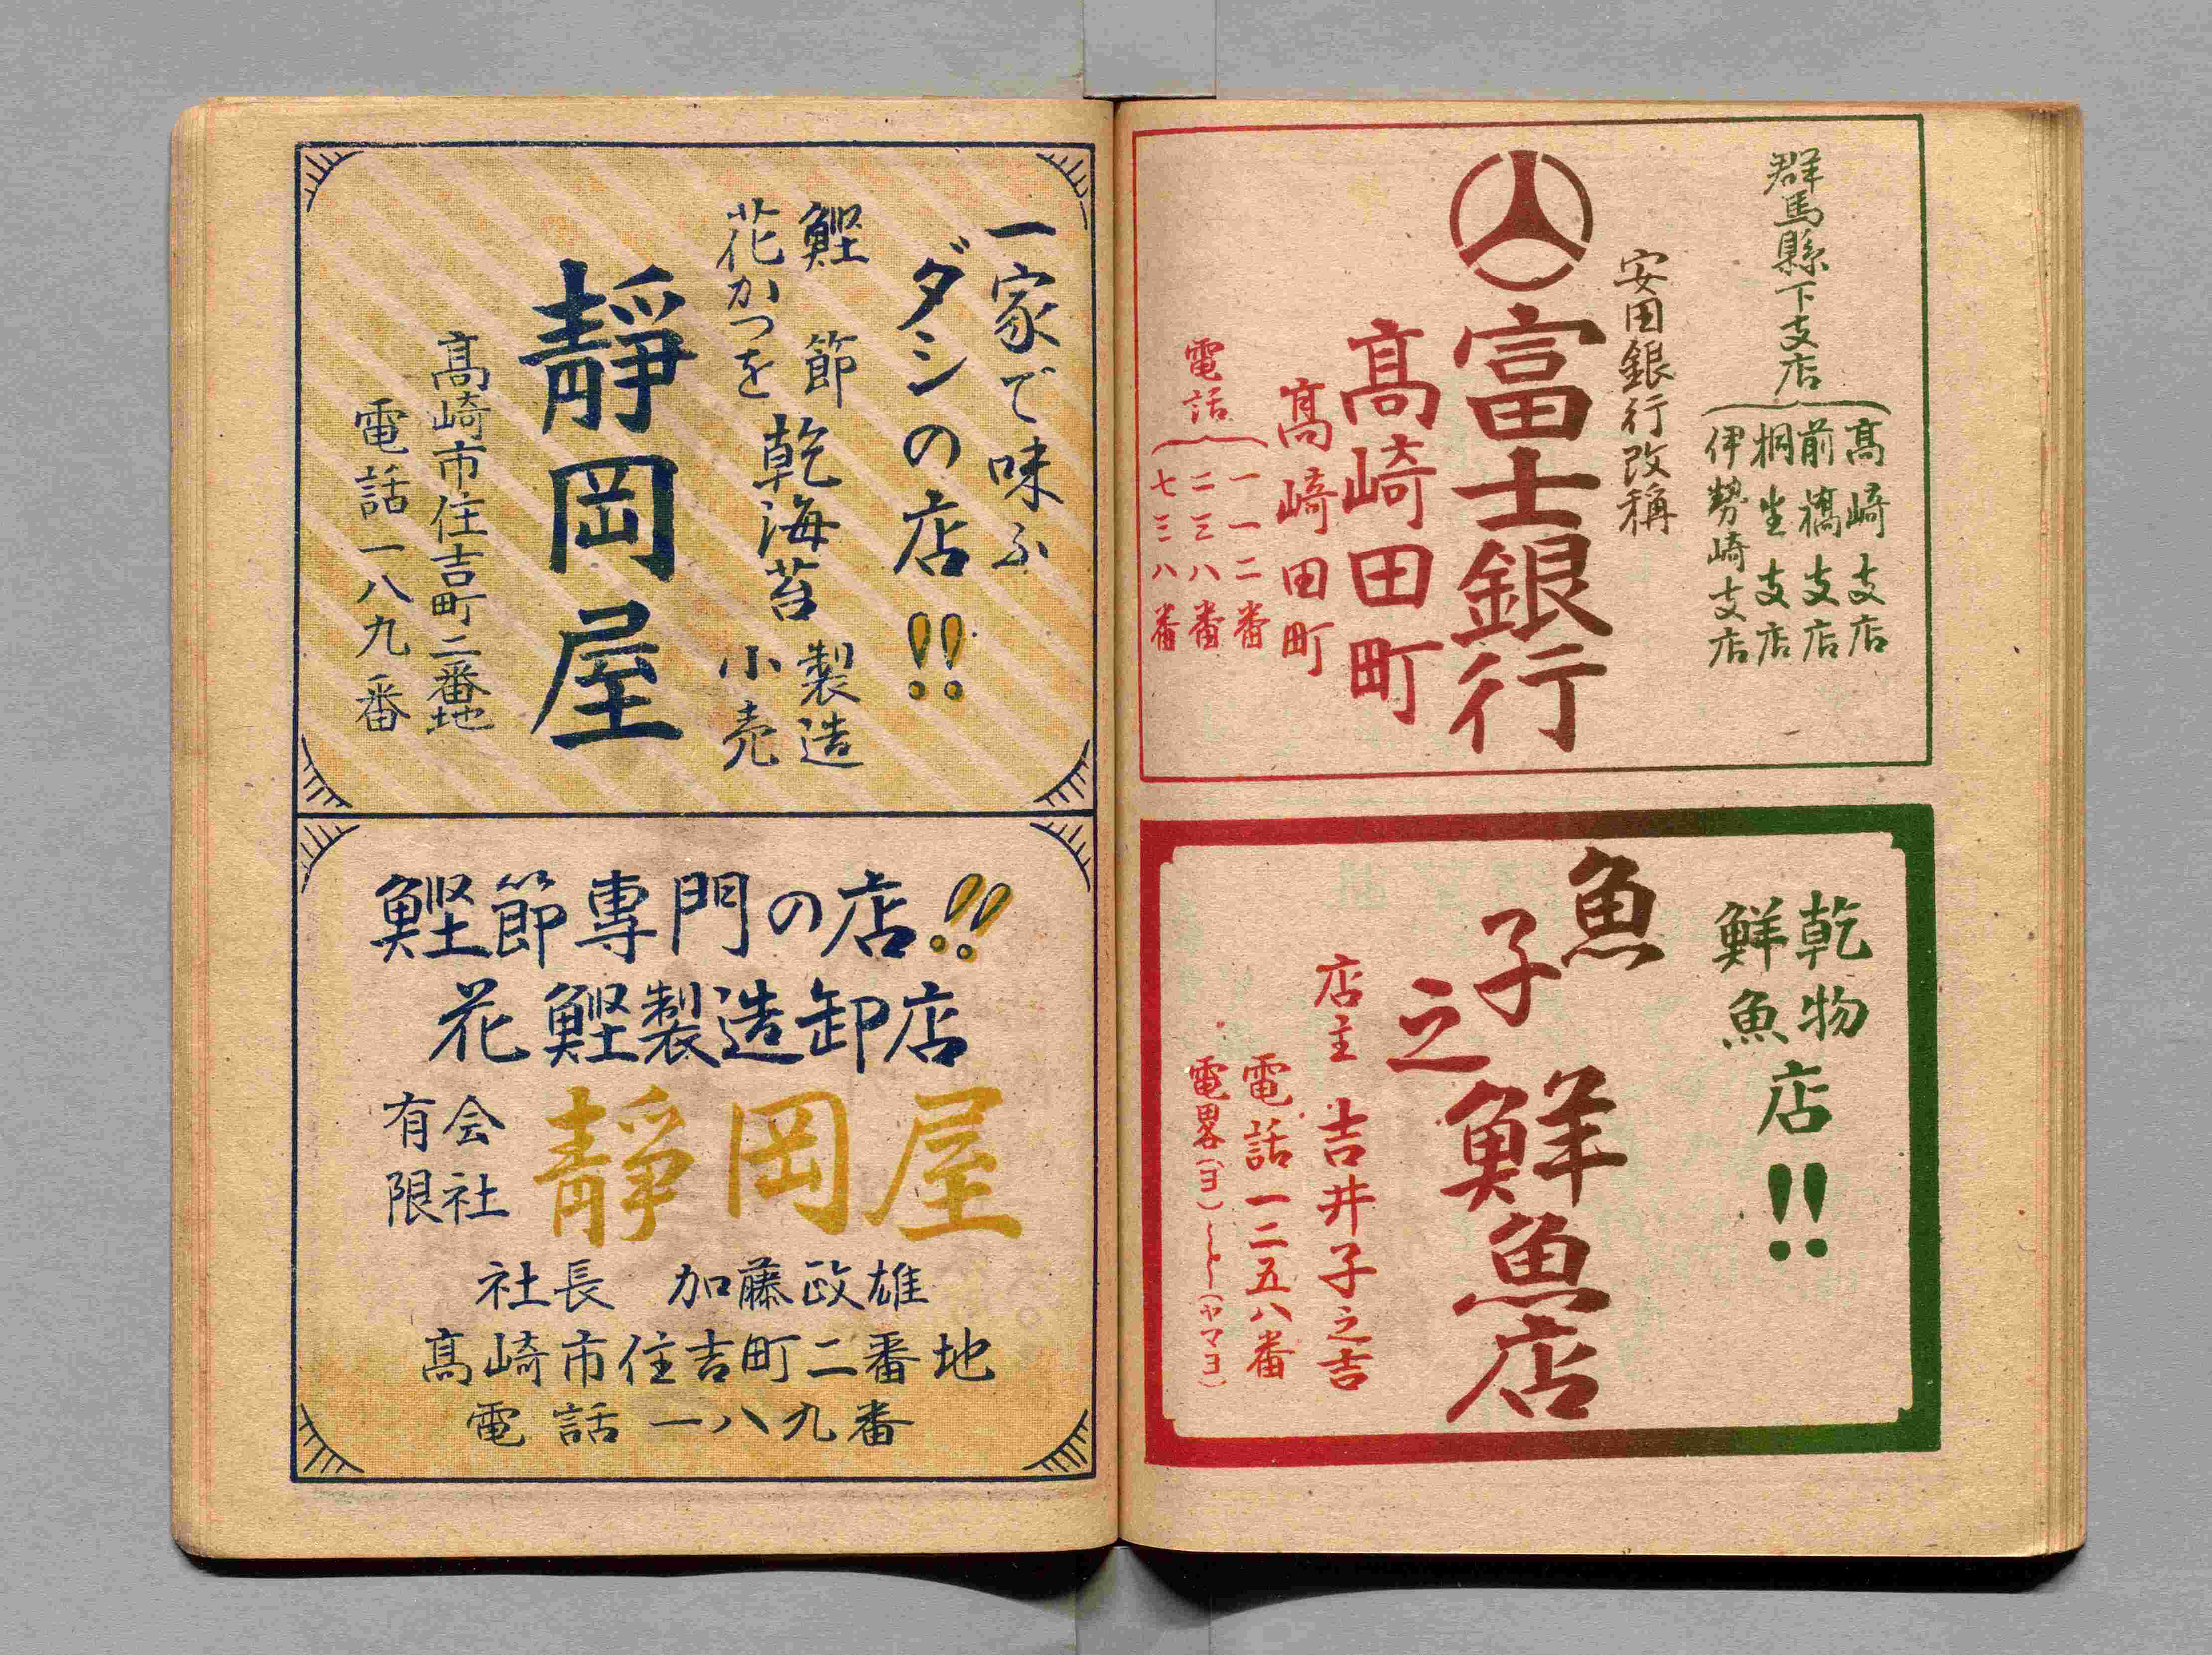 群馬縣下支店
高崎支店
前橋支店
桐生支店
伊勢崎支店
安田銀行改稱
富士銀行
高崎田町
高崎田町
電話
一一二番
二三八番
七三八番
乾物
鮮魚
店!!
魚子之
鮮魚店
店主 吉井子之吉
電話一二五八番
電畧(ヨ)〜と〜(ヤマヨ)
一家で味ふ
ダシの店!!
鰹節
花かつを
乾海苔
製造
小売
靜岡屋
高崎市住吉町二番地
電話一八九番
鰹節専門の店!!
花鰹製造卸店
有限会社
靜岡屋
社長 加藤政雄
高崎市住吉町二番地
電話一八九番